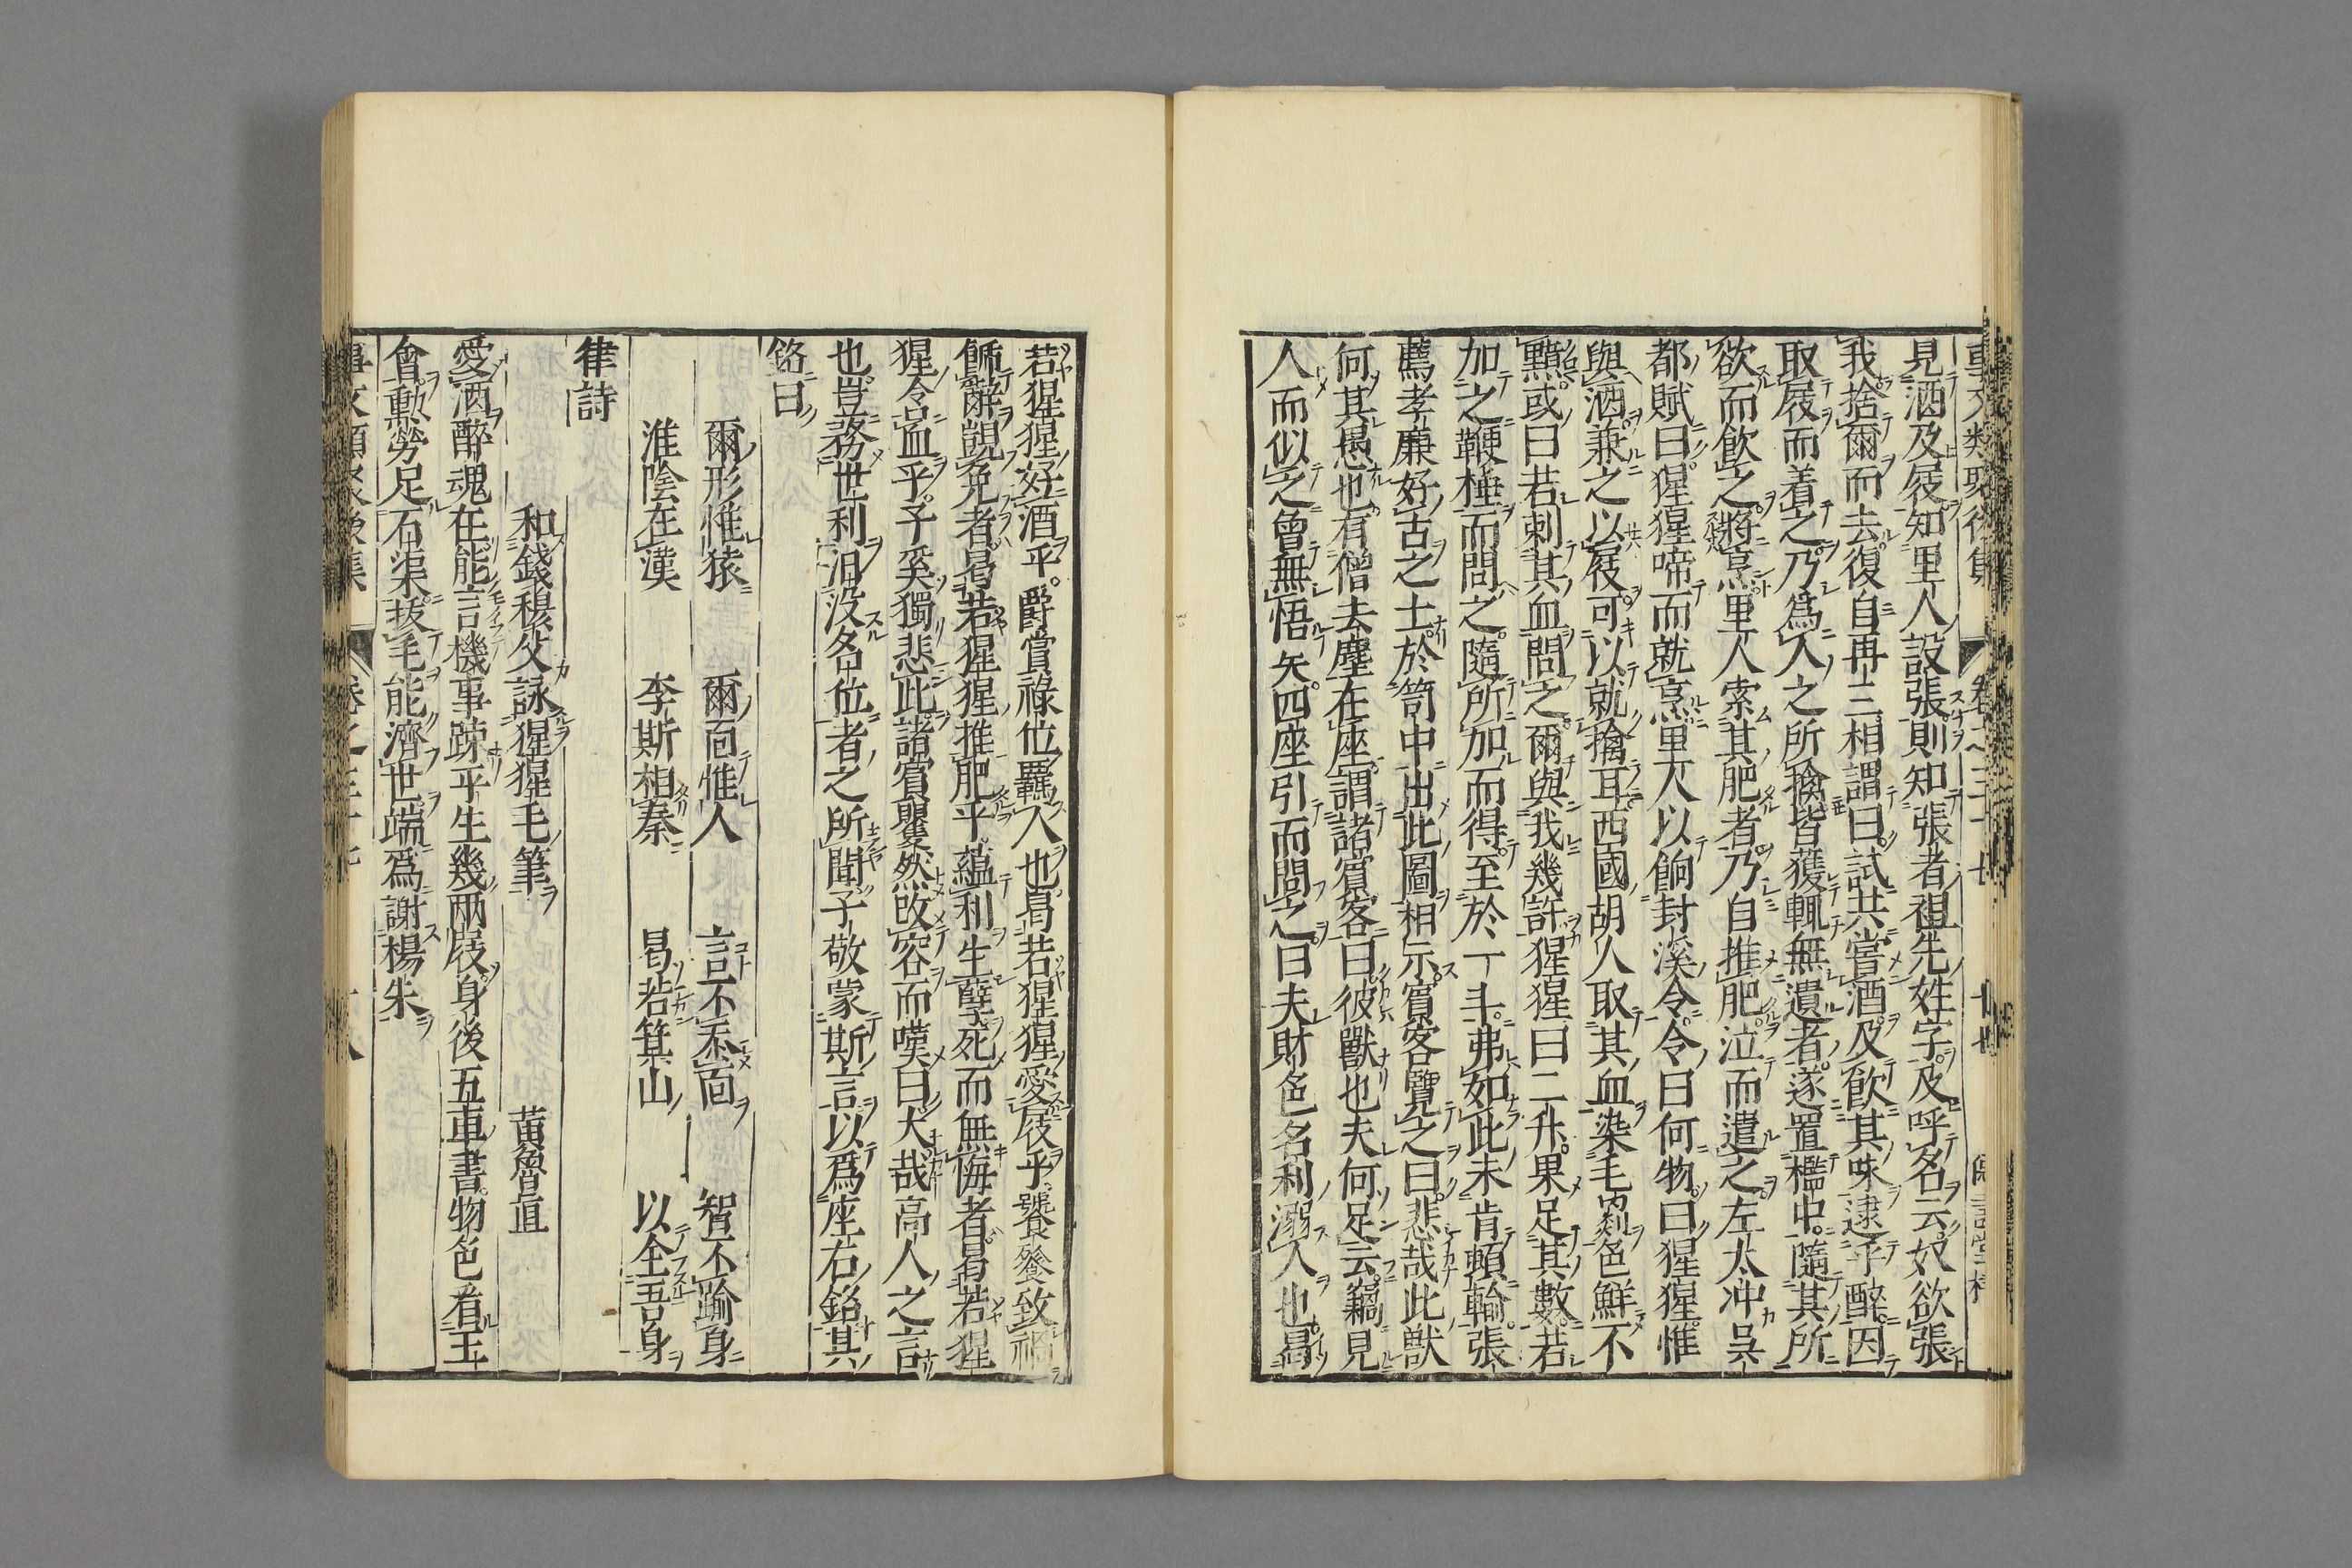 見酒及屐知里人設張則知張者祖先姓字及呼名云奴欲張
我捨爾而去復自再三相謂曰試共嘗酒及飲其味逮乎醉因
取屐而着之乃爲人之所擒皆獲輒無遺者遂置檻中隨其所
欲而飲之將烹里人索其肥者乃自推肥泣而遣之左太冲吳
都賦曰猩猩啼而就烹里人以餉封溪令令曰何物曰猩猩惟
與酒兼之以屐可以就擒耳西國胡人取其血染毛罽色鮮不
黯或曰若刺其血問之爾與我幾許猩猩曰二升果足其數若
加之鞭棰而問之隨所加而得至於一斗弗如此未肯頓輸張
薦孝廉好古之士於笥中出此圖相示賓客覽之曰悲哉此獣
何其愚也有僧去塵在座謂諸賓客曰彼獸也夫何足云竊見
人而似之曾無悟矣四座引而問之曰夫財色名利溺人也曷
若猩猩好酒乎爵賞祿位羈人也曷若猩猩愛屐乎饕餮致禍
飾辭覬免者曷若猩猩推肥乎蘊利生孽死而無悔者曷若猩
猩令血乎子奚獨悲此諸賓矍然改容而嘆曰大哉高人之言
也豈務世利汨没名位者之所聞乎敬蒙斯言以爲座右銘其
銘曰
爾形惟猿 爾面惟人 言不忝面 智不踰身
淮陰在漢 李斯相秦 曷若箕山 以全吾身
律詩
和錢穆父詠猩猩毛筆 黃魯直
愛酒醉魂在能言機事踈平生幾兩屐身後五車書物色看王
會勲勞足石渠拔毛能濟世端爲謝楊朱